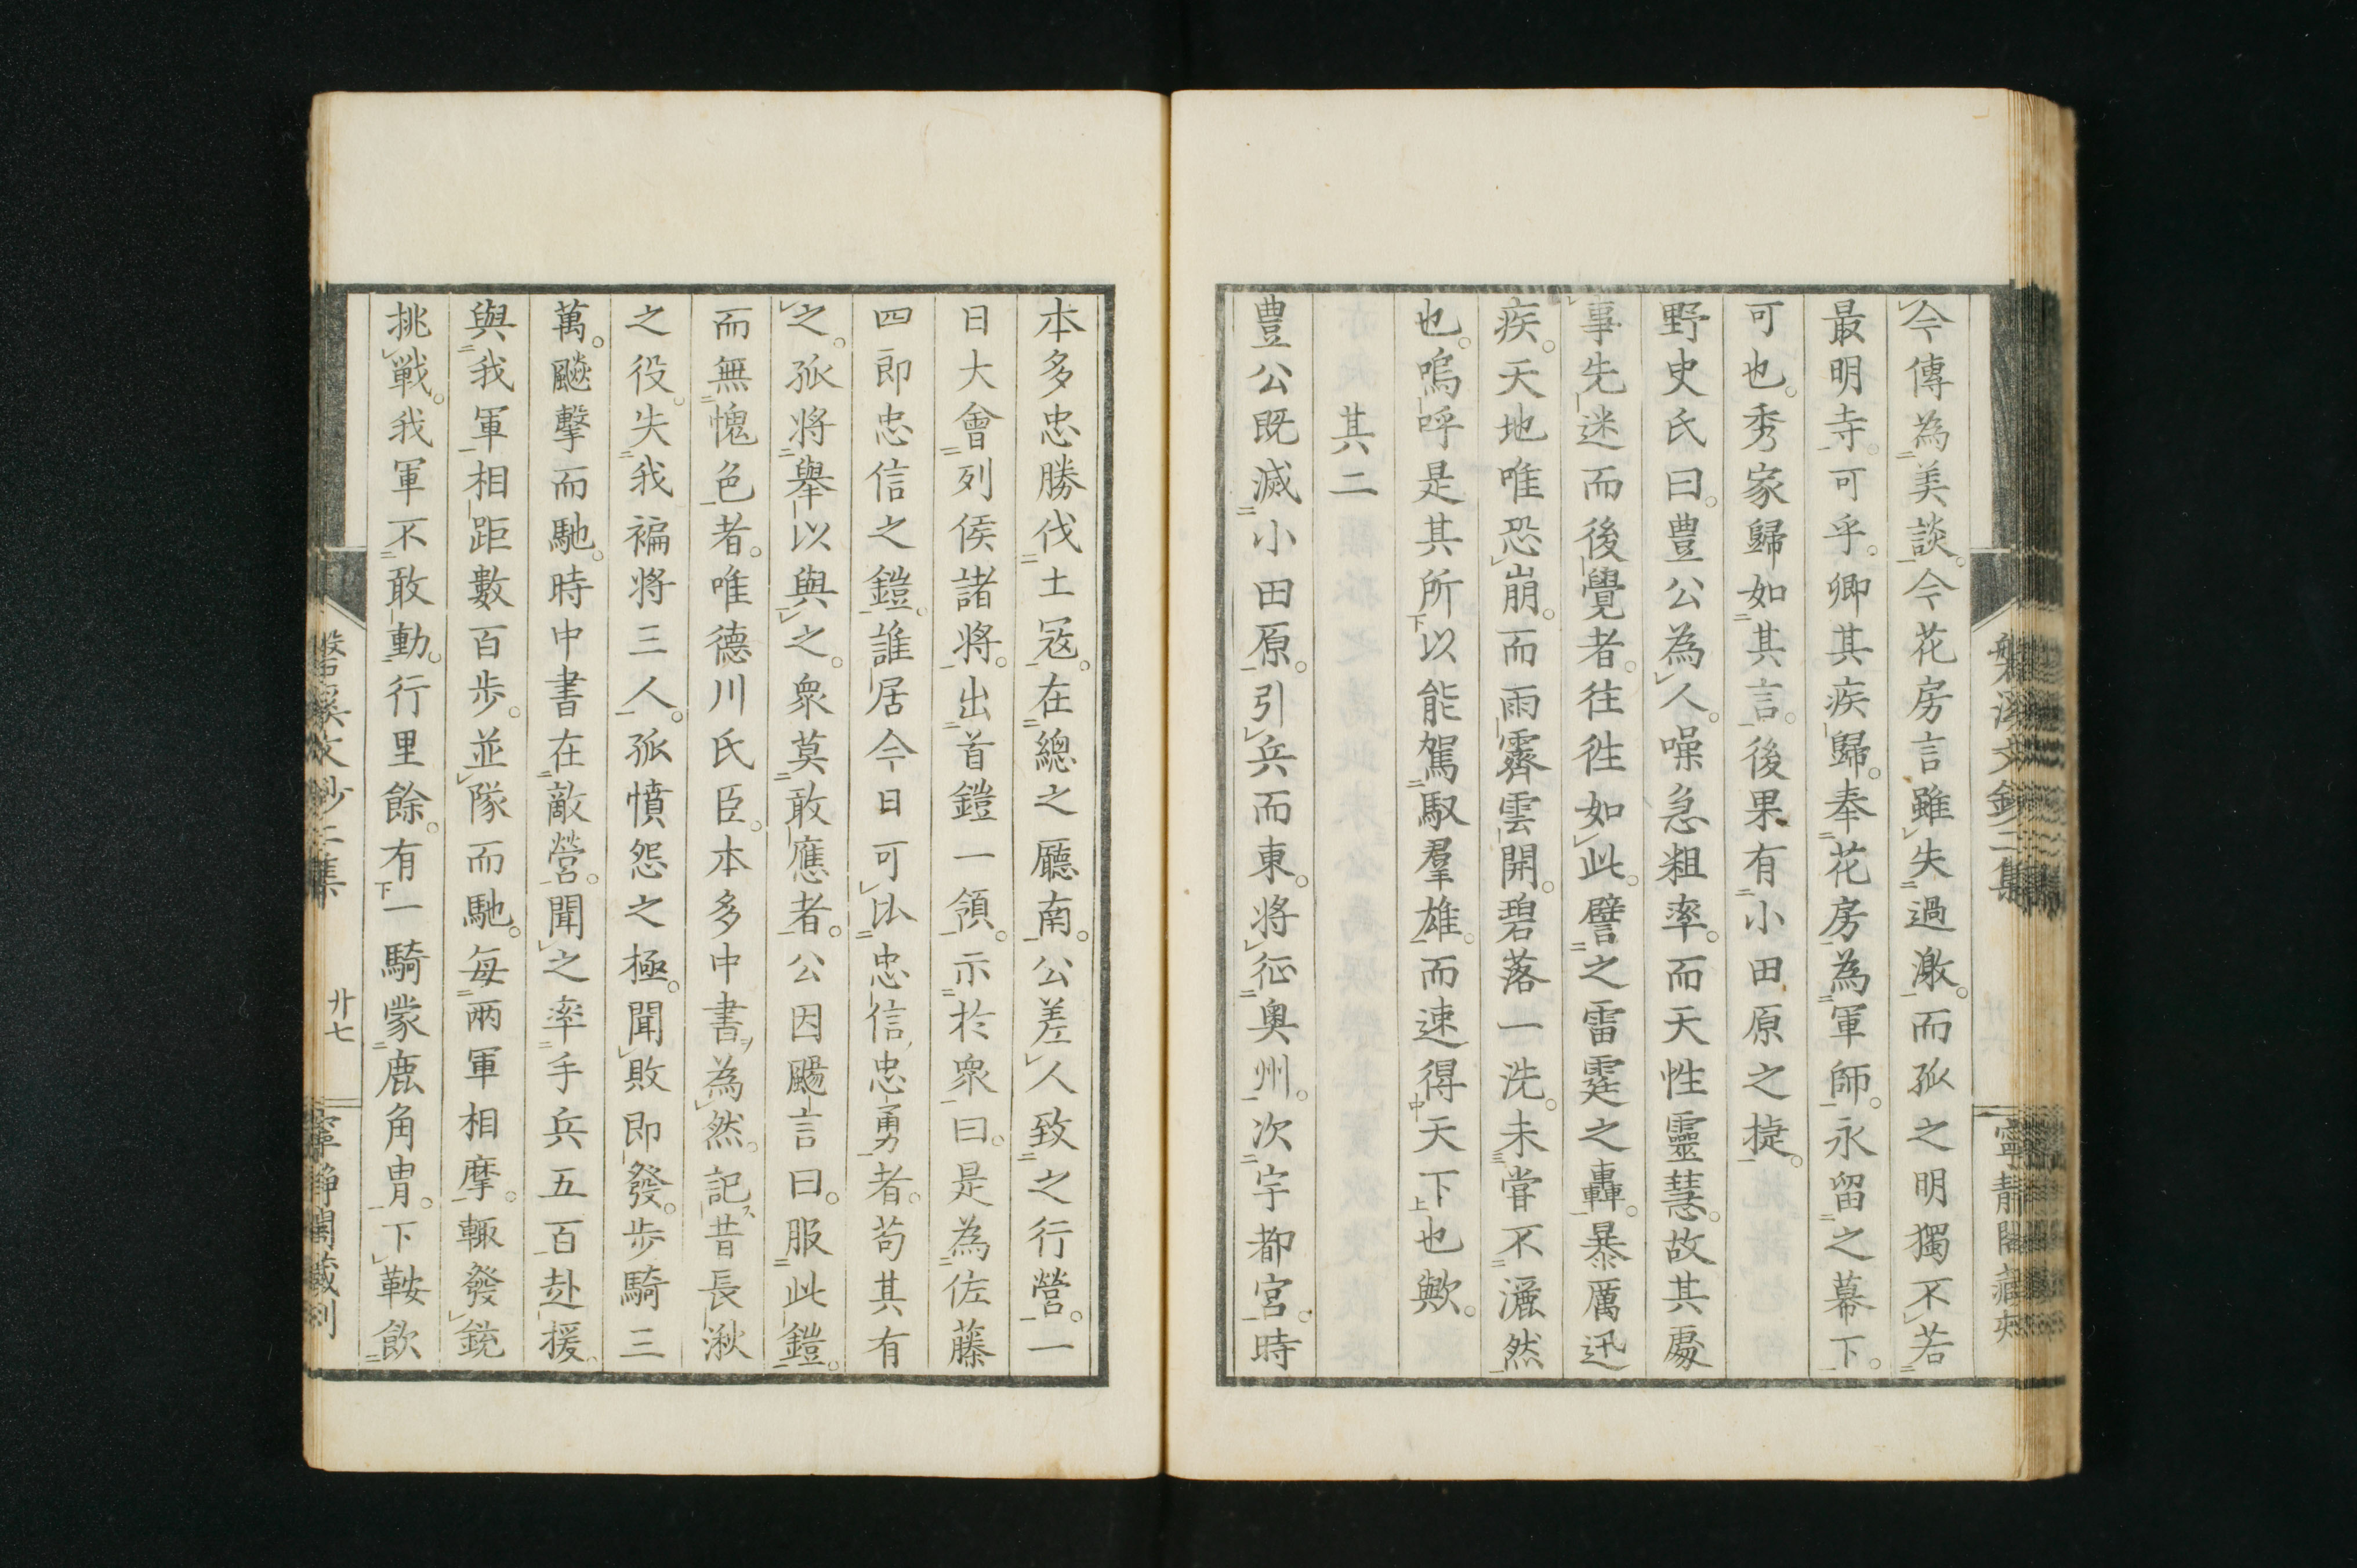 今傳為美談。今花房言雖失過激。而孤之明獨不若
最明寺。可乎。卿其疾歸。奉花房為軍師。永留之幕下。
可也。秀家歸如其言。後果有小田原之捷。
野史氏曰。豊公為人。噪急粗率。而天性靈慧。故其處
事先迷而後覺者。往往如此。譬之雷霆之轟。暴厲迅
疾。天地唯恐崩。而雨霽雲開。碧落一洗。未嘗不灑然
也。嗚呼是其所以能駕馭羣雄。而速得天下也歟。
其二
豊公既滅小田原。引兵而東。将征奥州。次宇都宮。時
本多忠勝伐土冦。在總之廳南。公差人致之行營。一
日大會列侯諸将。出首鎧一領。示於衆曰。是為佐藤
四郎忠信之鎧。誰居今日可比忠信忠勇者。苟其有
之。孤将舉以與之。衆莫敢應者。公因颺言曰。服此鎧。
而無愧色者。唯德川氏臣。本多中書為然。記昔長湫
之役。失我褊将三人。孤憤怨之極。聞敗即發。步騎三
萬。飈擊而馳。時中書在敵營。聞之率手兵五百赴援。
與我軍相距數百步。並隊而馳。每兩軍相摩。輙發銃
挑戰。我軍不敢動。行里餘。有一騎蒙鹿角冑。下鞍飲
廿七